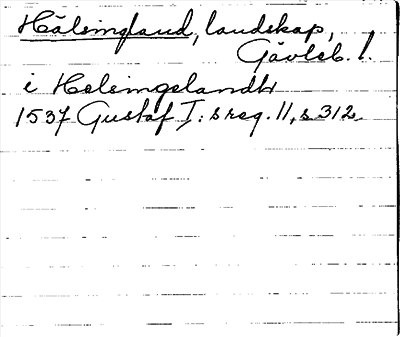 Hälsingland, landskap,
Gävleb. l.
i Helsingelandh
1537 Gustaf I: s reg. 11, s 312.